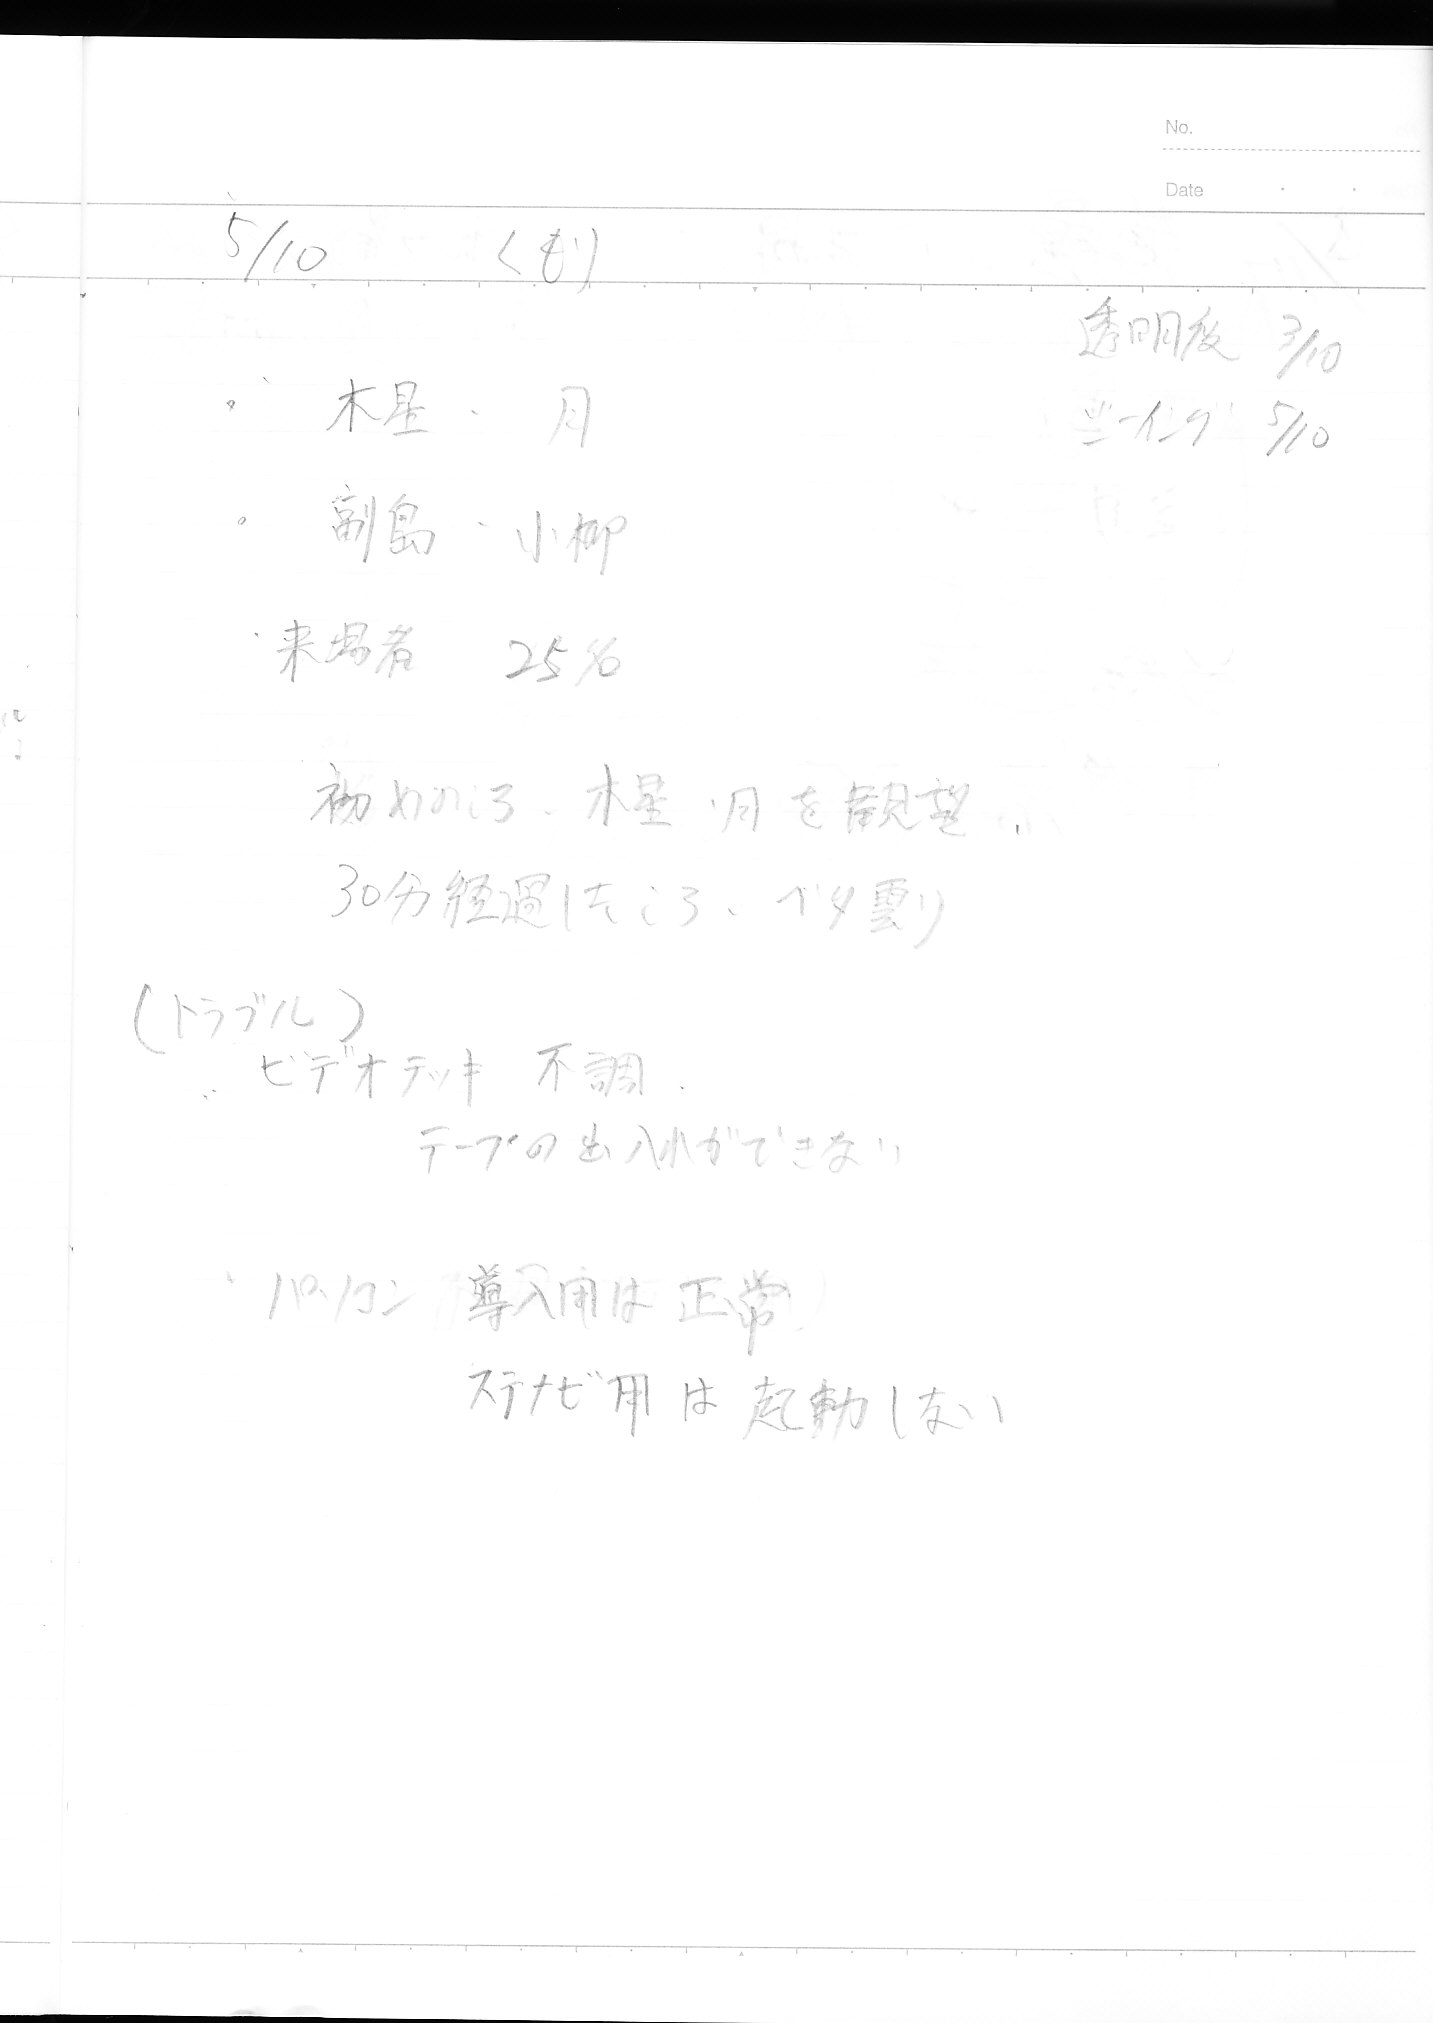 No.
Date
5/10 くもり
透明度 3/10
・ 木星・月
シーイング 5/10
・ 副島・小柳
・来場者 25名
初めのころ、木星・月を観望、
30分経過したころ、ベタ曇り
(トラブル)
・ビデオデッキ 不調.
テープの出入れができない
・パソコン 導入用は正常
ステナビ用は起動しない